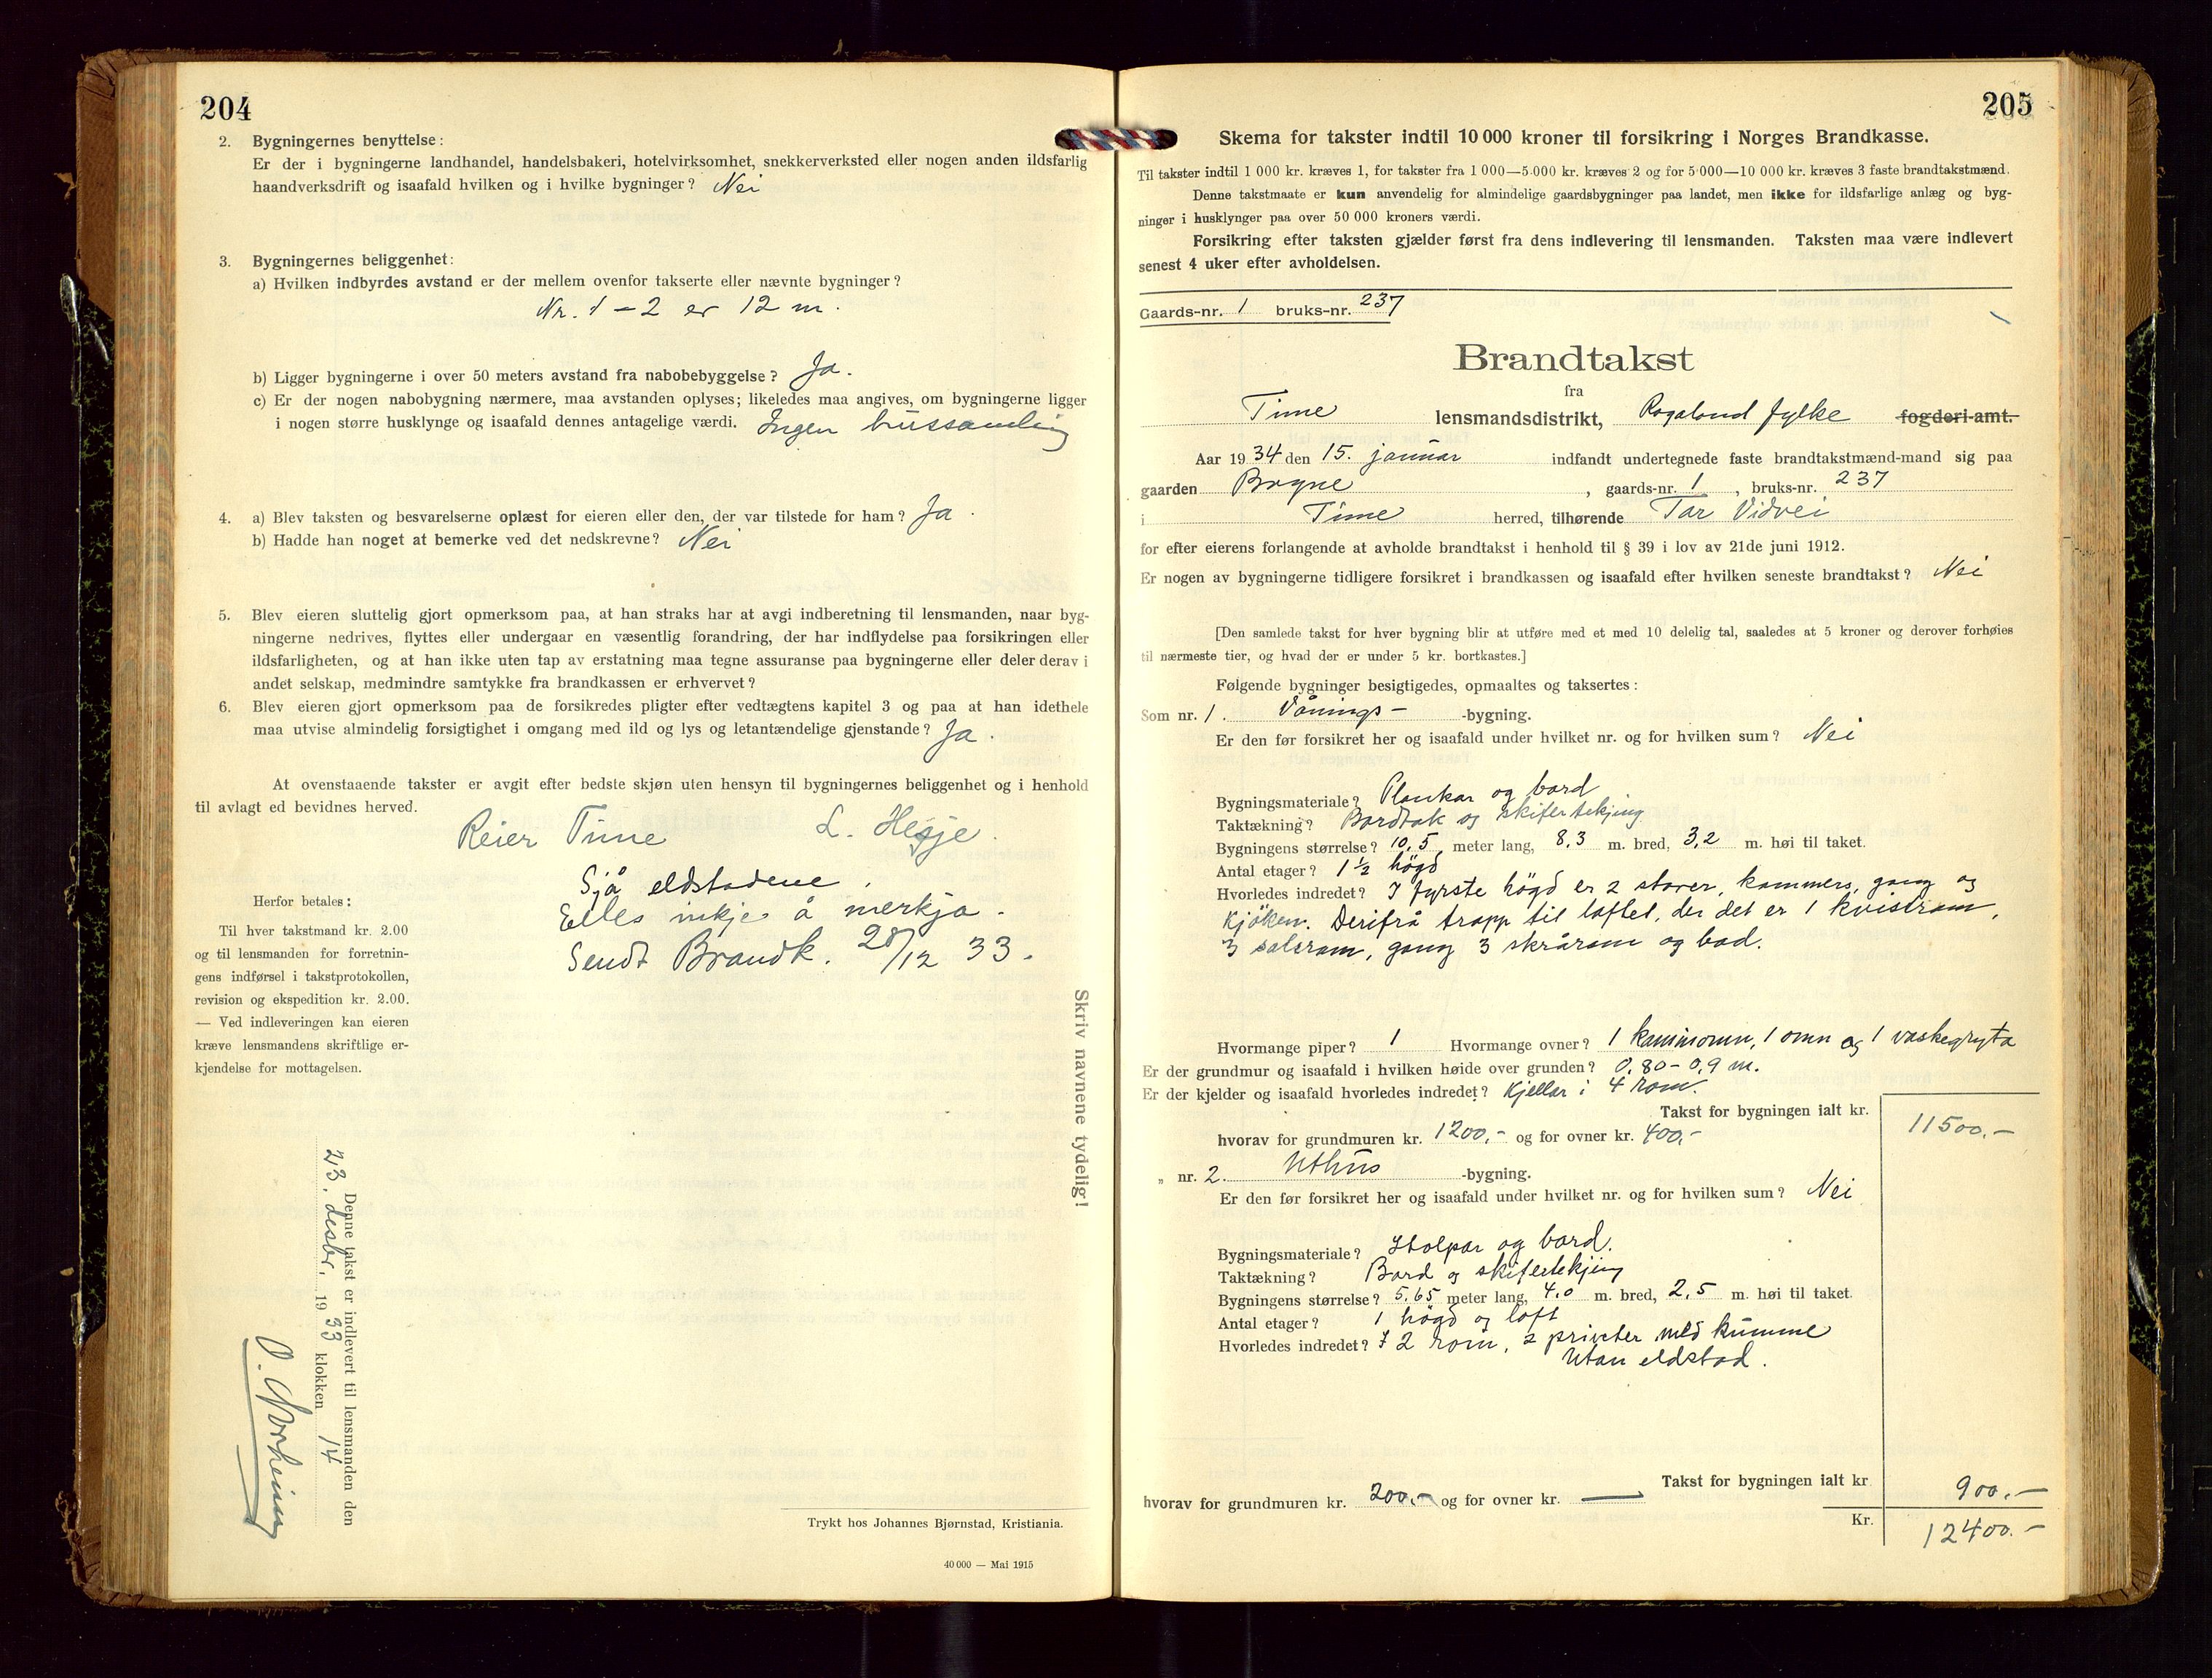 204
2. Bygningernes benyttelse:
Er der i bygningerne landhandel, handelsbakeri, hotelvirksomhet, snekkerverksted eller nogen anden ildsfarlig
haandverksdrift og isaafald hvilken og i hvilke bygninger? Nei
3. Bygningernes beliggenhet:
a) Hvilken indbyrdes avstand er der mellem ovenfor takserte eller nævnte bygninger?
Nr. 1 - 2 er 12 m.
b) Ligger bygningerne i over 50 meters avstand fra nabobebyggelse? Ja.
c) Er der nogen nabobygning nærmere, maa avstanden oplyses; likeledes maa angives, om bygningerne ligger
i nogen større husklynge og isaafald dennes antagelige værdi. Ingen hussamling
4. a) Blev taksten og besvarelserne oplæst for eieren eller den, der var tilstede for ham? Ja.
b) Hadde han noget at bemerke ved det nedskrevne? Nei
5. Blev eieren sluttelig gjort opmerksom paa, at han straks har at avgi indberetning til lensmanden, naar byg-
ningerne nedrives, flyttes eller undergaar en væsentlig forandring, der har indflydelse paa forsikringen eller
ildsfarligheten, og at han ikke uten tap av erstatning maa tegne assuranse paa bygningerne eller deler derav i
andet selskap, medmindre samtykke fra brandkassen er erhvervet?
6. Blev eieren gjort opmerksom paa de forsikredes pligter efter vedtægtens kapitel 3 og paa at han idethele
maa utvise almindelig forsigtighet i omgang med ild og lys og letantændelige gjenstande? Ja.
At ovenstaaende takster er avgit efter bedste skjøn uten hensyn til bygningernes beliggenhet og i henhold
til avlagt ed bevidnes herved.
Reier Time L. Hegje.
Sjå eldstadene.
Elles inkje å merkja.
Sendt Brandk. 28/12 33.
Herfor betales:
Til hver takstmand kr. 2.00
og til lensmanden for forretnin-
gens indførsel i takstprotokollen,
revision og ekspedition kr. 2.00.
— Ved indleveringen kan eieren
kræve lensmandens skriftlige er-
kjendelse for mottagelsen.
Skriv navnene tydelig!
Denne takst er indlevert til lensmanden den
23. desbr. 1933 klokken 14
Trykt hos Johannes Bjørnstad, Kristiania.
40 000 — Mai 1915
205
Skema for takster indtil 10 000 kroner til forsikring i Norges Brandkasse.
Til takster indtil 1 000 kr. kræves 1, for takster fra 1 000—5 000 kr. kræves 2 og for 5 000—10 000 kr. kræves 3 faste brandtakstmænd.
Denne takstmaate er kun anvendelig for almindelige gaardsbygninger paa landet, men ikke for ildsfarlige anlæg og byg-
ninger i husklynger paa over 50 000 kroners værdi.
Forsikring efter taksten gjælder først fra dens indlevering til lensmanden. Taksten maa være indlevert
senest 4 uker efter avholdelsen.
Gaards-nr. 1 bruks-nr. 237
Brandtakst
fra
Time lensmandsdistrikt, Rogaland fylke fogderi-amt.
Aar 1934 den 15. januar indfandt undertegnede faste brandtakstmænd-mand sig paa
gaarden Bryne, gaards-nr. 1, bruks-nr. 237
i Time herred, tilhørende Tor Vidvei
for efter eierens forlangende at avholde brandtakst i henhold til § 39 i lov av 21de juni 1912.
Er nogen av bygningerne tidligere forsikret i brandkassen og isaafald efter hvilken seneste brandtakst? Nei
[Den samlede takst for hver bygning blir at utføre med et med 10 delelig tal, saaledes at 5 kroner og derover forhøies
til nærmeste tier, og hvad der er under 5 kr. bortkastes.]
Følgende bygninger besigtigedes, opmaaltes og taksertes:
Som nr. 1. Vånings- -bygning.
Er den før forsikret her og isaafald under hvilket nr. og for hvilken sum? Nei
Bygningsmateriale? Plankar og bord
Taktækning? Bordtak og skifertekjing
Bygningens størrelse? 10,5 meter lang, 8,3 m. bred, 3,2 m. høi til taket.
Antal etager? 1 ½ högd
Hvorledes indredet? I fyrste högd er 2 stover, kammers, gang og
kjöken. Derifrå trapp til loftet, der det er 1 kvistrom,
3 salsrom, gang 3 skrårom og bad.
Hvormange piper? 1 Hvormange ovner? 1 kaminomn, 1 omn og 1 vaskegryta
Er der grundmur og isaafald i hvilken høide over grunden? 0,80 - 0,9 m.
Er der kjelder og isaafald hvorledes indredet? Kjellar i 4 rom.
Takst for bygningen ialt kr. 11500,-
hvorav for grundmuren kr. 1200,- og for ovner kr. 400,-
„ nr. 2. Uthus -bygning.
Er den før forsikret her og isaafald under hvilket nr. og for hvilken sum? Nei
Bygningsmateriale? Stolpar og bord.
Taktækning? Bord og skifertekjing
Bygningens størrelse? 5,65 meter lang, 4,0 m. bred, 2,5 m. høi til taket.
Antal etager? 1 högd og loft
Hvorledes indredet? I 2 rom, 2 priveter med kumme
Utan eldstad.
Takst for bygningen ialt kr 900,-
hvorav for grundmuren kr. 200,- og for ovner kr. —
Kr. 12400.-